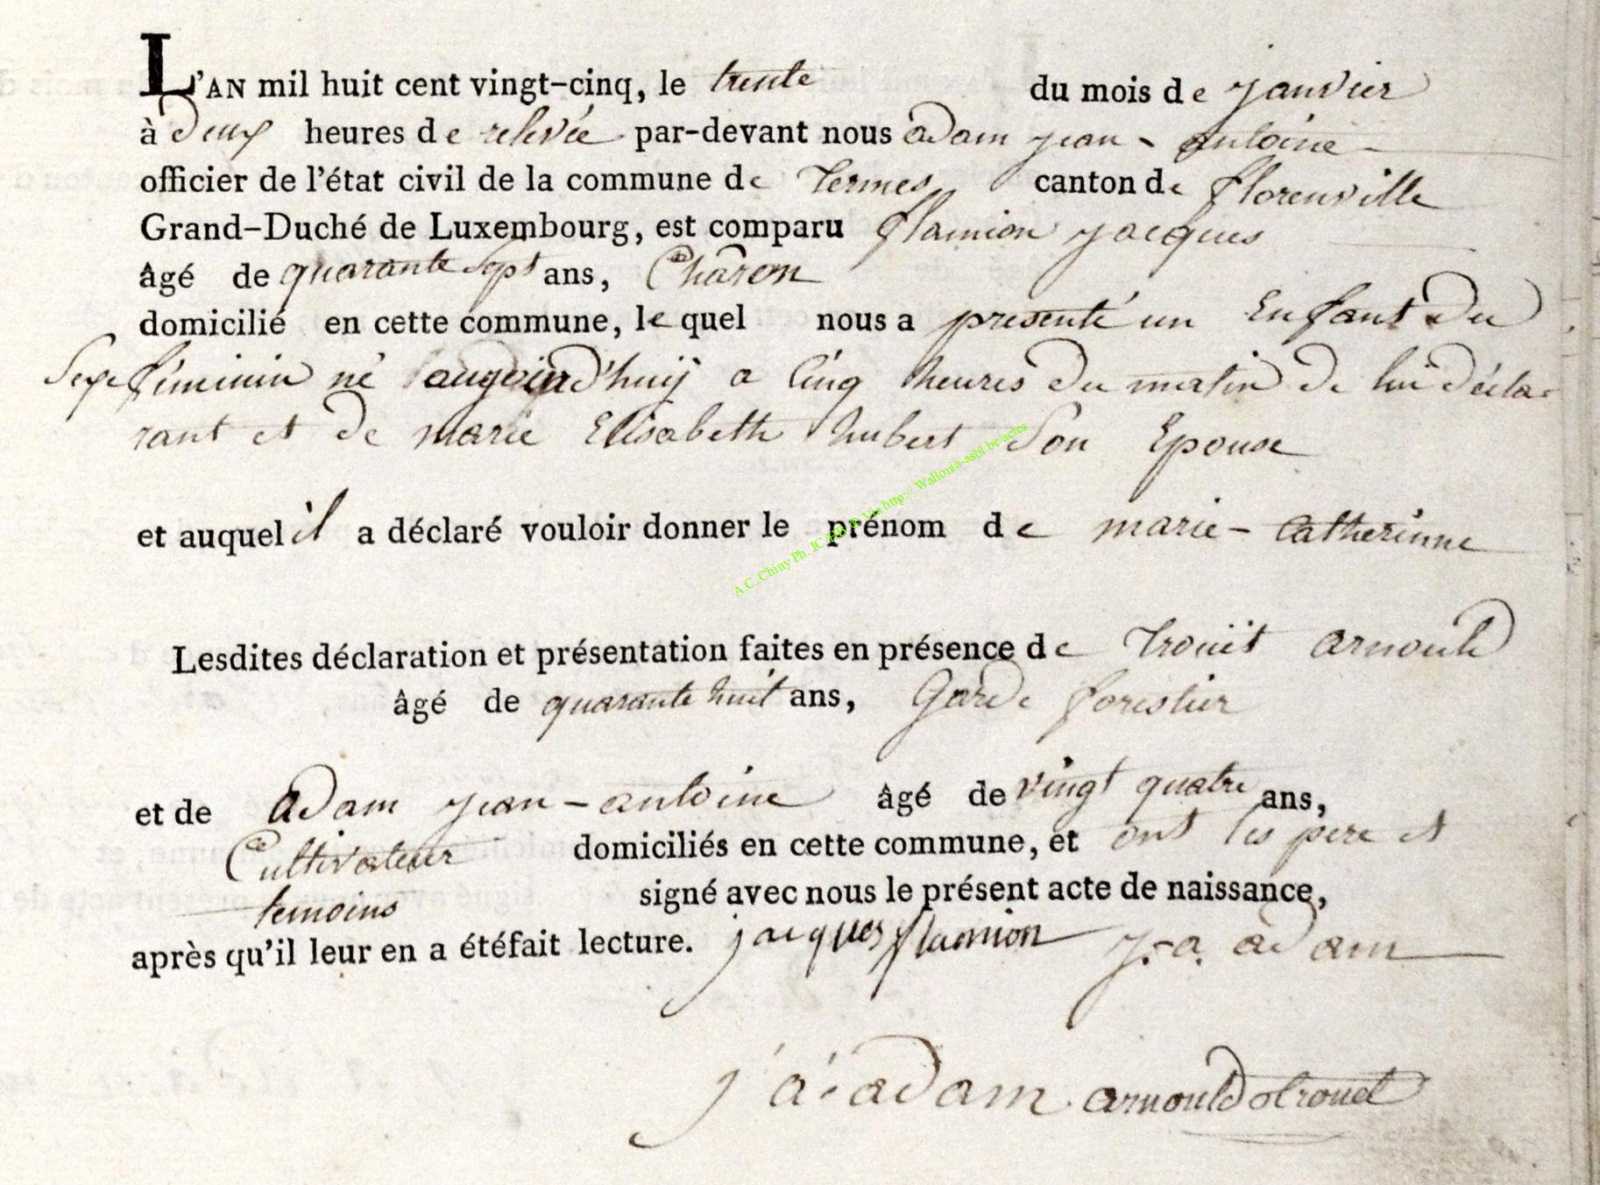 L'AN mil huit cent vingt-cinq, le trente du mois de janvier
à deux heures de relevée par-devant nous adam jean - antoine
officier de l'état civil de la commune de termes canton de florenville
Grand-Duché de Luxembourg, est comparu flamion jacques
âgé de quarante sept ans, Charon
domicilié en cette commune, le quel nous a presenté un Enfant du
Sexe féminin né aujourd'huij a Cinq heures du matin de lui décla-
rant et de marie Elisabeth hubert Son Epouse
et auquel il a déclaré vouloir donner le prénom de marie - Catherinne
Lesdites déclaration et présentation faites en présence de trouët arnould
âgé de quarante huit ans, Garde forestier
et de adam jean - antoine âgé de vingt quatre ans,
Cultivateur domiciliés en cette commune, et ont les pere et
temoins signé avec nous le présent acte de naissance,
après qu'il leur en a étéfait lecture. jacques flamion j. a. adam
j a adam arnould trouet
A.C. Chiny Ph.